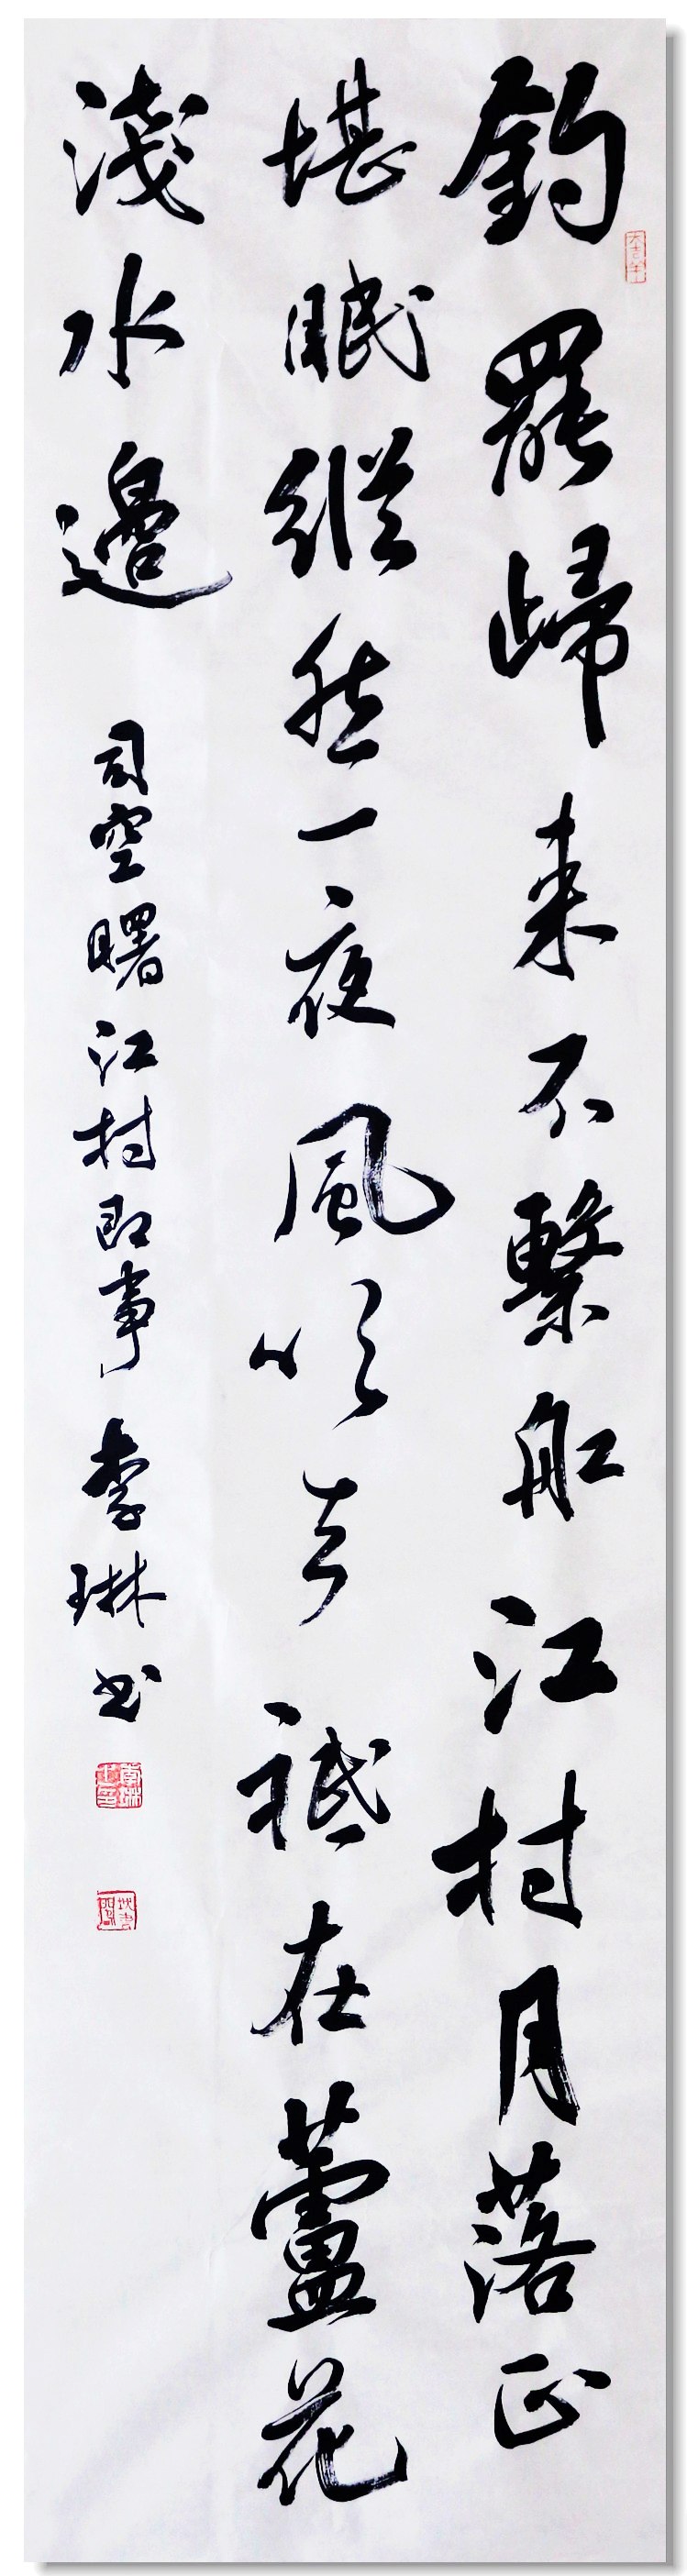 釣罷歸来不繫船江村月落正
堪眠縱然一夜風吹去祗在蘆花
淺水邊
司空曙江村即事 李琳书